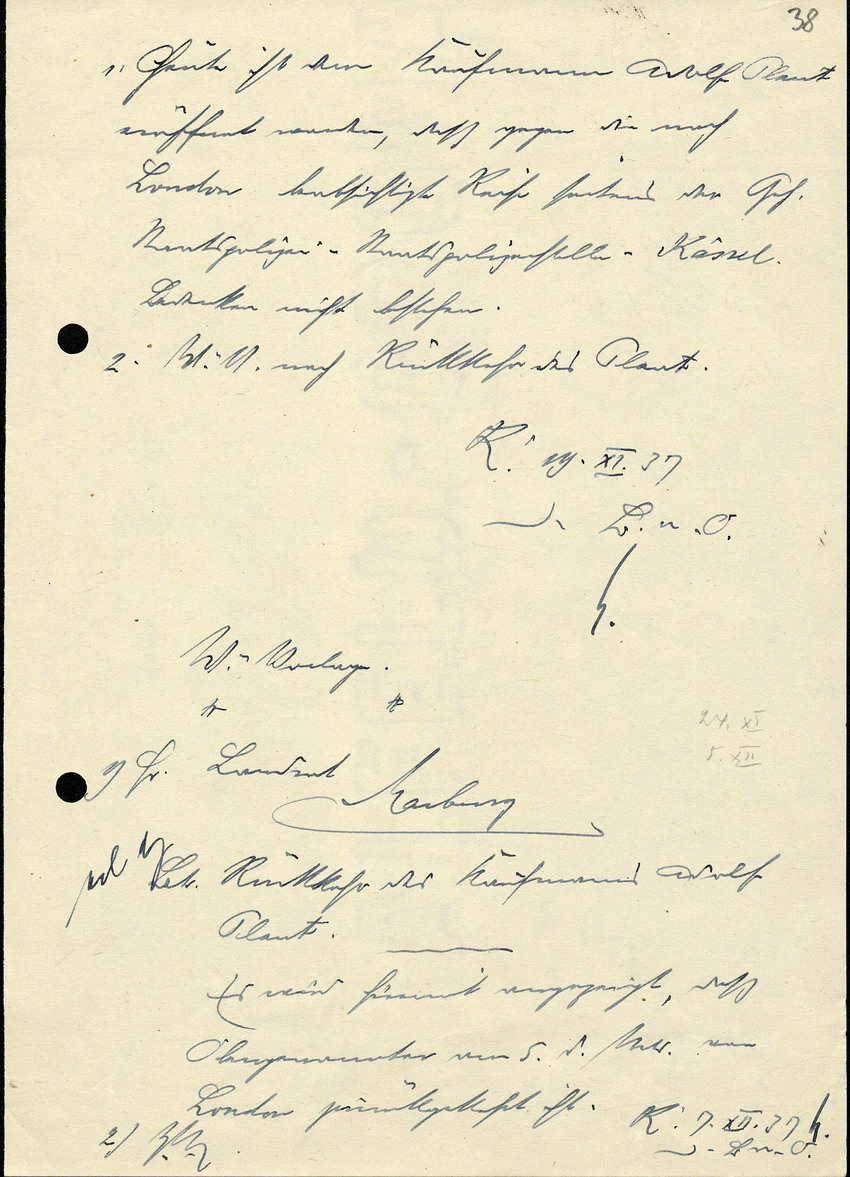 38
1. Heute ist dem Kaufmann Adolf Plaut
eröffnet worden, daß gegen die nach
London beabsichtigte Reise seitens der Geh.
Staatspolizei - Staatspolizeistelle - Kassel.
Bedenken nicht bestehen.
2. W.V. nach Rückkehr des Plaut.
K. 19. XI. 37
D. B. a. O.
W.-Vorlage.
24. XI
5. XII
1) Hr. Landrat
Marburg
Betr. Rückkehr des Kaufmanns Adolf
Plaut.
Es wird hiermit angezeigt, daß
Obengenannter am 5. d. Mts. von
London zurückgekehrt ist.
K. 7. XII. 37
2) ZdA
D. B. a. O.